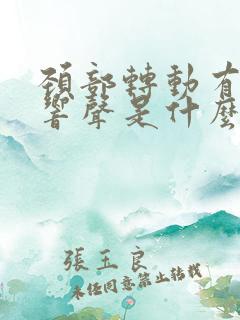 頸部轉動有
響聲是什麼
張玉良
未經同意禁止轉載